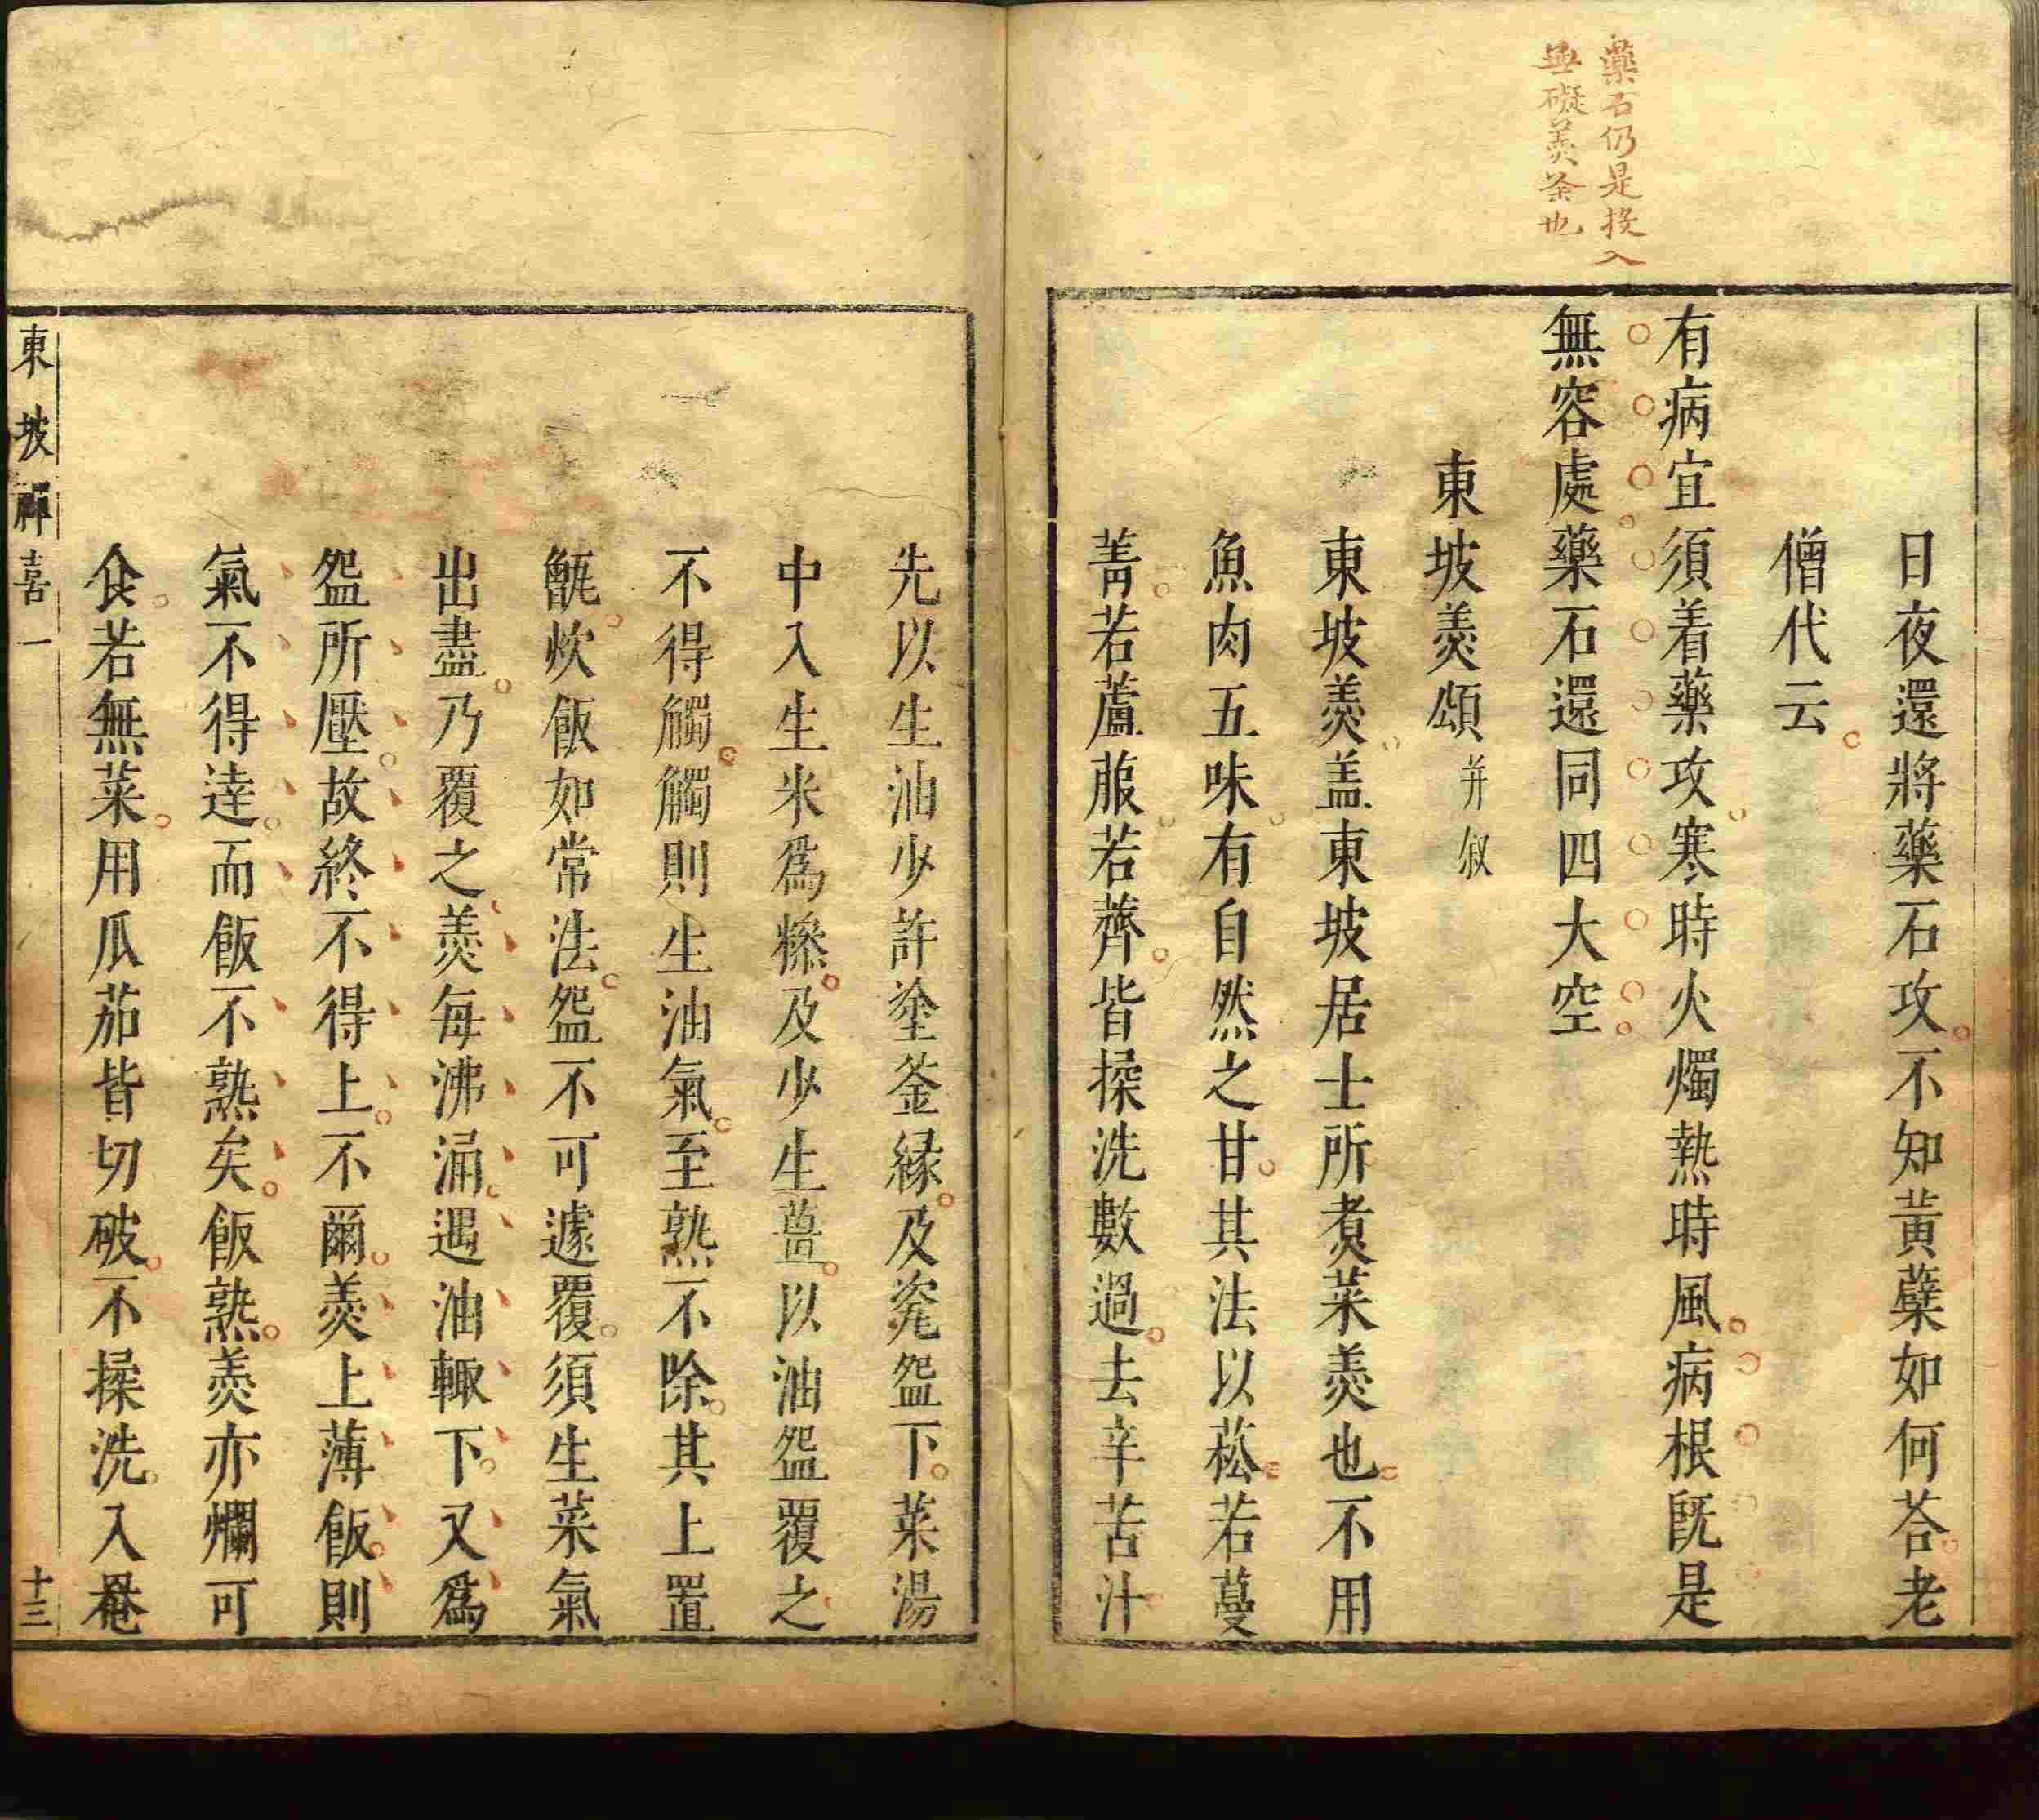 藥石仍是投入
無礙羹釜也
日夜還將藥石攻不知黃蘗如何荅老
僧代云
有病宜須着藥攻寒時火燭熱時風病根旣是
無容處藥石還同四大空
東坡羹頌并敘
東坡羹盖東坡居士所煑菜羹也不用
魚肉五味有自然之甘其法以菘若蔓
菁若蘆菔若薺皆揉洗數過去辛苦汁
先以生油少許塗釜緣及瓷盌下菜湯
中入生米爲糝及少生薑以油盌覆之
不得觸觸則生油氣至熟不除其上置
甑炊飯如常法盌不可遽覆須生菜氣
出盡乃覆之羹每沸涌遇油輙下又爲
盌所壓故終不得上不爾羹上薄飯則
氣不得達而飯不熟矣飯熟羹亦爛可
食若無菜用瓜茄皆切破不揉洗入罨
東坡禪喜一
十三